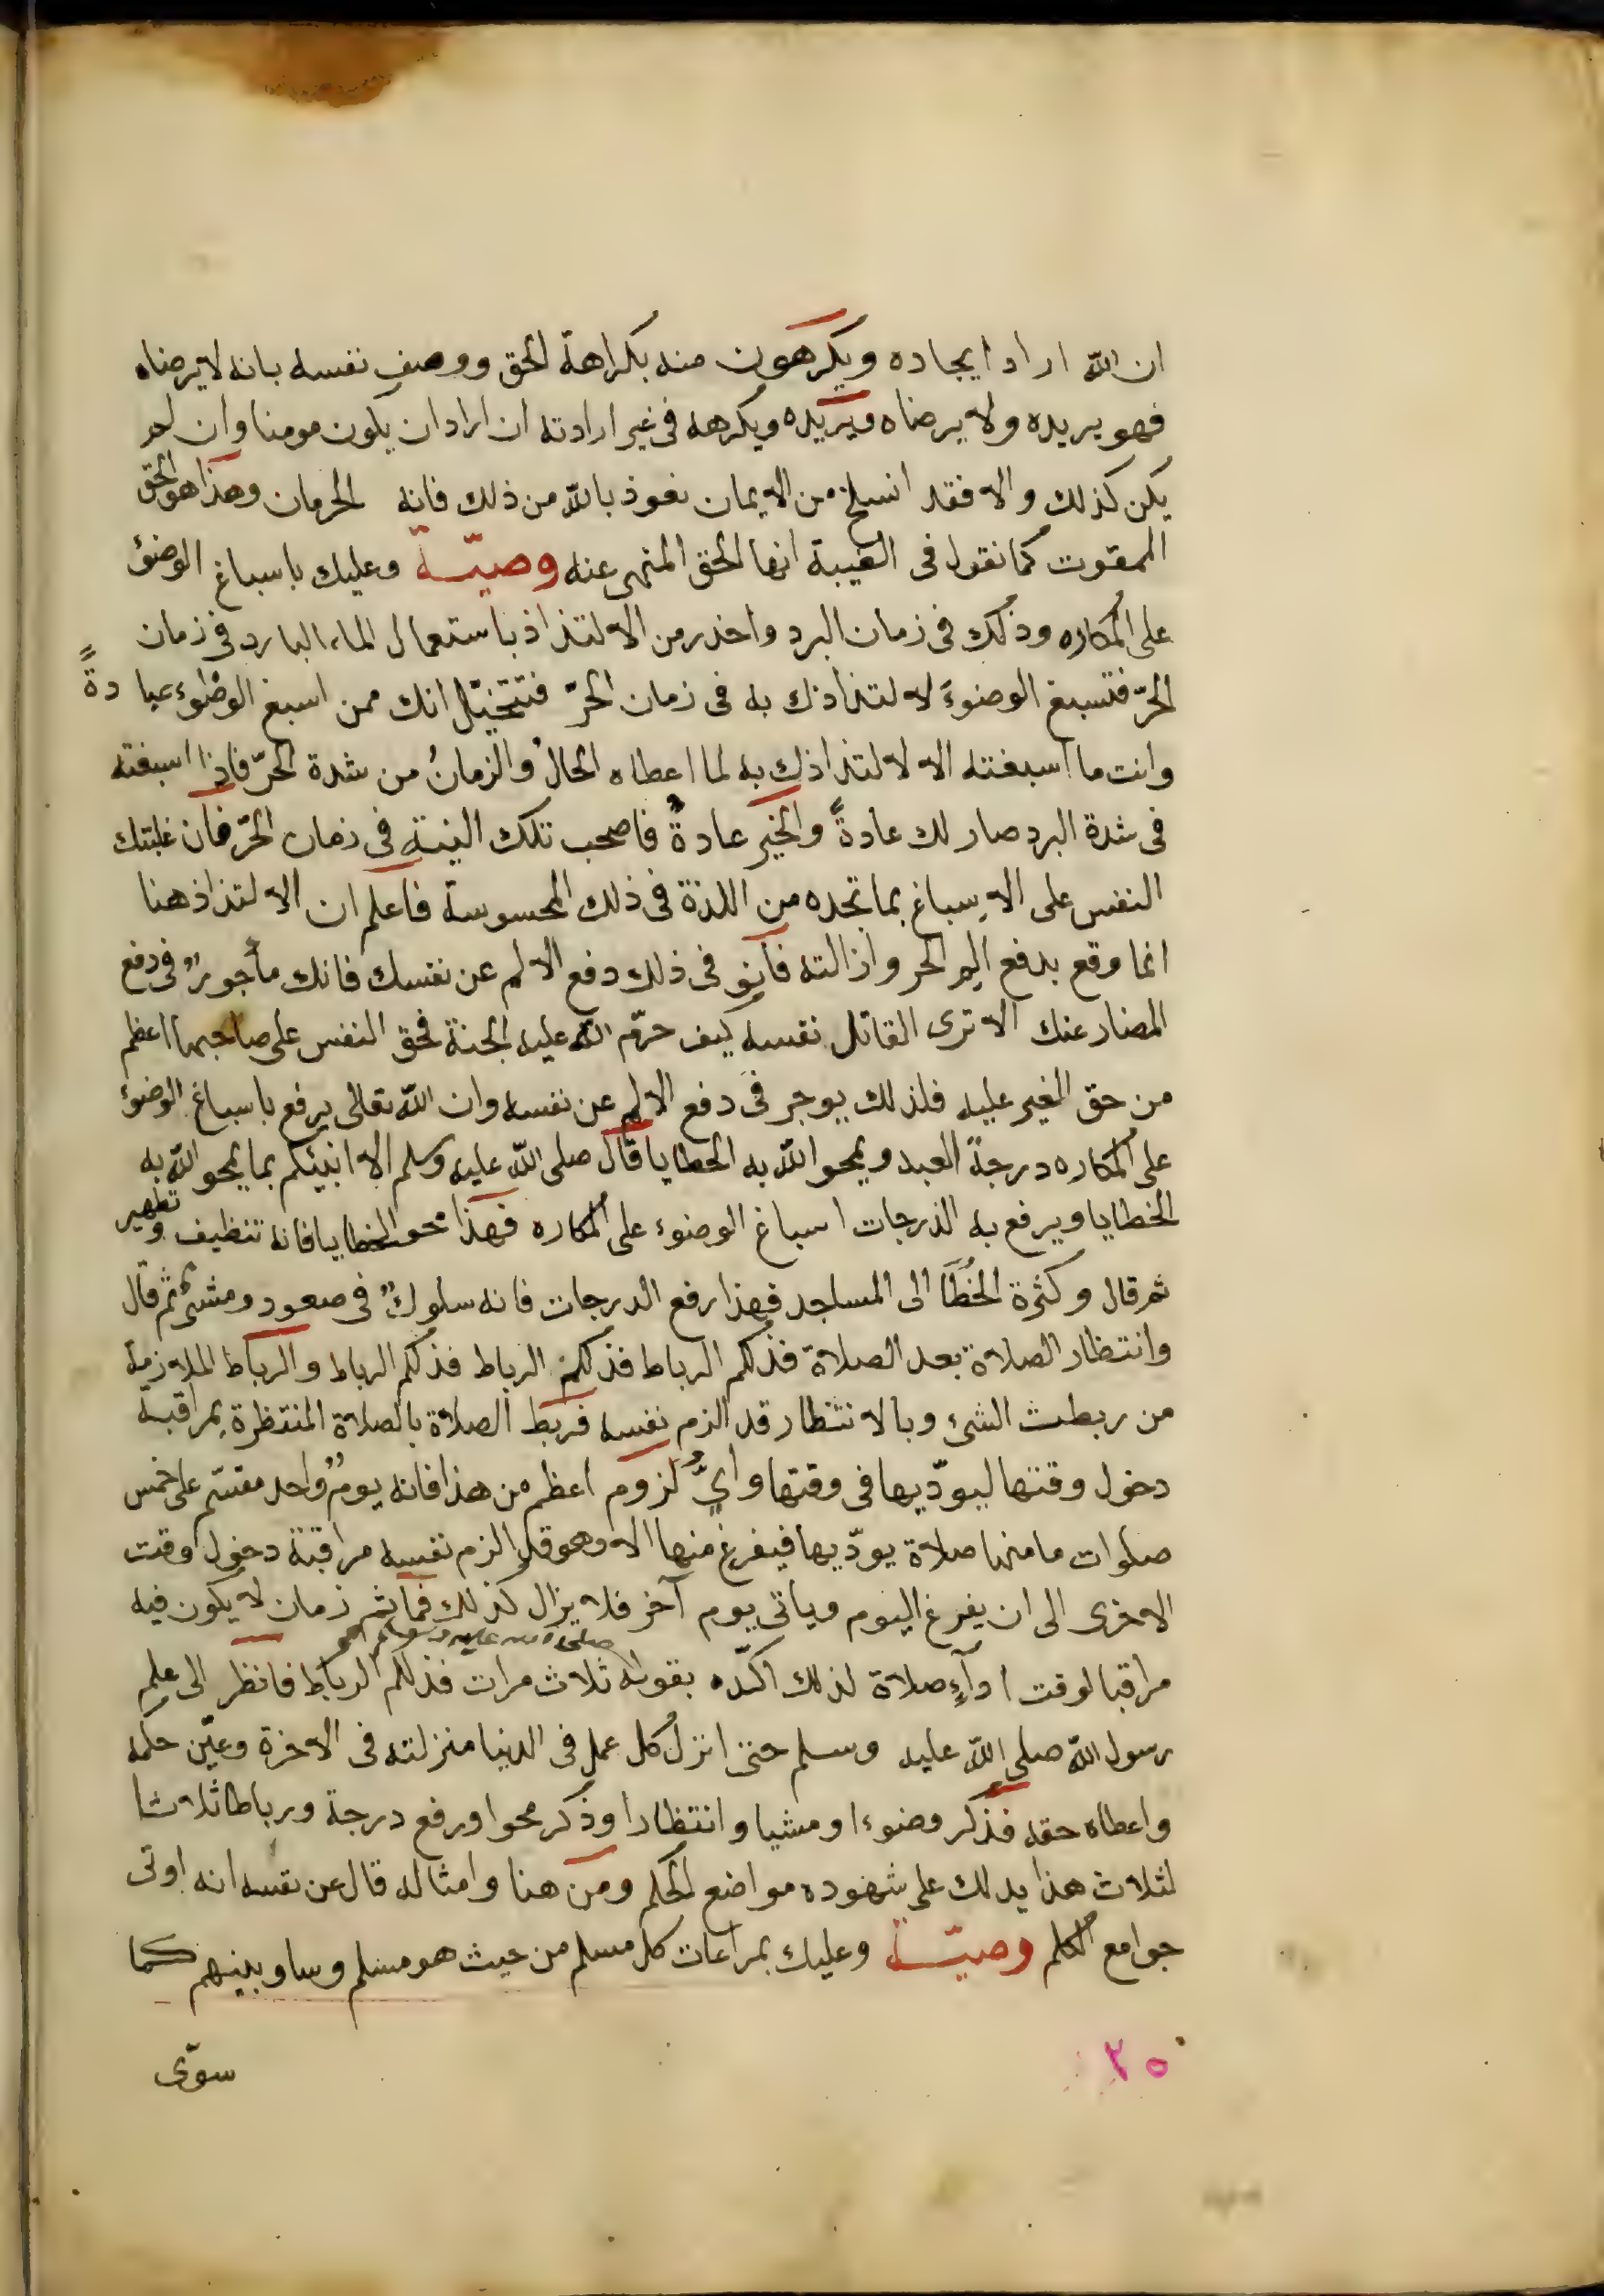 ان الله اراد ايجاده ويكرهون منه بكراهة الحق ووصف نفسه بانه لا يرضاه
فهو يريده ولا يرضاه ويريده ويكرهه في غير ارادته ان اراد ان يكون مومنا وان لم
يكن كذلك والا فقد انسلخ من الايمان نعوذ بالله من ذلك فانه الحرمان وهذا هو الحق
الممقوت كما نقول في الغيبة انها الحق المنهى عنه وصيّة وعليك باسباغ الوضؤ
على المكاره وذلك في زمان البرد واحذر من الالتذاذ باستعمال الماء البارد في زمان
الحرّ فتسبغ الوضوءَ لالتذاذك به في زمان الحرّ فتتخيّل انك ممن اسبغ الوضوء عبادةً
وانت ما اسبغته الا لالتذاذك به لما اعطاه الحالُ والزمانُ من شدة الحرّ فاذا اسبغته
في شدة البرد صار لك عادةً والخير عادةٌ فاصحب تلك النية في زمان الحرّ فان غلبتك
النفس على الاِسباغ بما تجده من اللذة في ذلك المحسوسة فاعلم ان الالتذاذ هنا
انما وقع بدفع الم الحر وازالته فانو في ذلك دفع الالم عن نفسك فانك مأجورٌ في دفع
المضار عنك الا ترى القاتل نفسه كيف حرّم الله عليه الجنة فحق النفس على صاحبها اعظم
من حق الغير عليه فلذلك يوجر في دفع الالم عن نفسه وان الله تعالى يرفع باسباغ الوضوء
على المكاره درجة العبد ويمحو الله به الخطايا قال صلى الله عليه وسلم الا انبئكم بما يمحو الله به
الخطايا ويرفع به الدرجات اسباغ الوضوء على المكاره فهذا محو الخطايا فانه تنظيف وتطهير
ثم قال وكثرة الخُطَا الى المساجد فهذا رفع الدرجات فانه سلوكٌ في صعود ومشئ ثم قال
وانتظار الصلاة بعد الصلاة فذلكم الرباط فذلكم الرباط فذلكم الرباط والرباط الملازمة
من ربطت الشئ وبالانتظار قد الزم نفسه فربط الصلاة بالصلاة المنتظرة بمراقبة
دخول وقتها ليودّيها في وقتها وايُّ لزوم اعظم من هذا فانه يومٌ واحد مقسّم على خمس
صلوات ما منها صلاة يودّيها فيفرغ منها الا وهو قد الزم نفسه مراقبة دخول وقت
الاخرى الى ان يفرغ اليوم وياتى يوم آخر فلا يزال كذلك فما ثم زمان لا يكون فيه
مراقبا لوقت ادآءِ صلاة لذلك اكّده بقوله صلى الله عليه وسلم ثلاث مرات فذلكم الرباط فانظر الى علم
رسول الله صلى الله عليه وسلم حتى انزل كل عمل في الدنيا منزلته في الاخرة وعيّن حكمه
واعطاه حقه فذكر وضوءا ومشيا وانتظارا وذكر محوا ورفع درجة ورباطا ثلاثا
لثلاث هذا يدلك على شهوده مواضع الحكم ومن هنا وامثاله قال عن نفسه انه اوتى
جوامع الكلم وصيّة وعليك بمراعات كل مسلم من حيث هو مسلم وساو بينهم كما
سوّى
٢٥